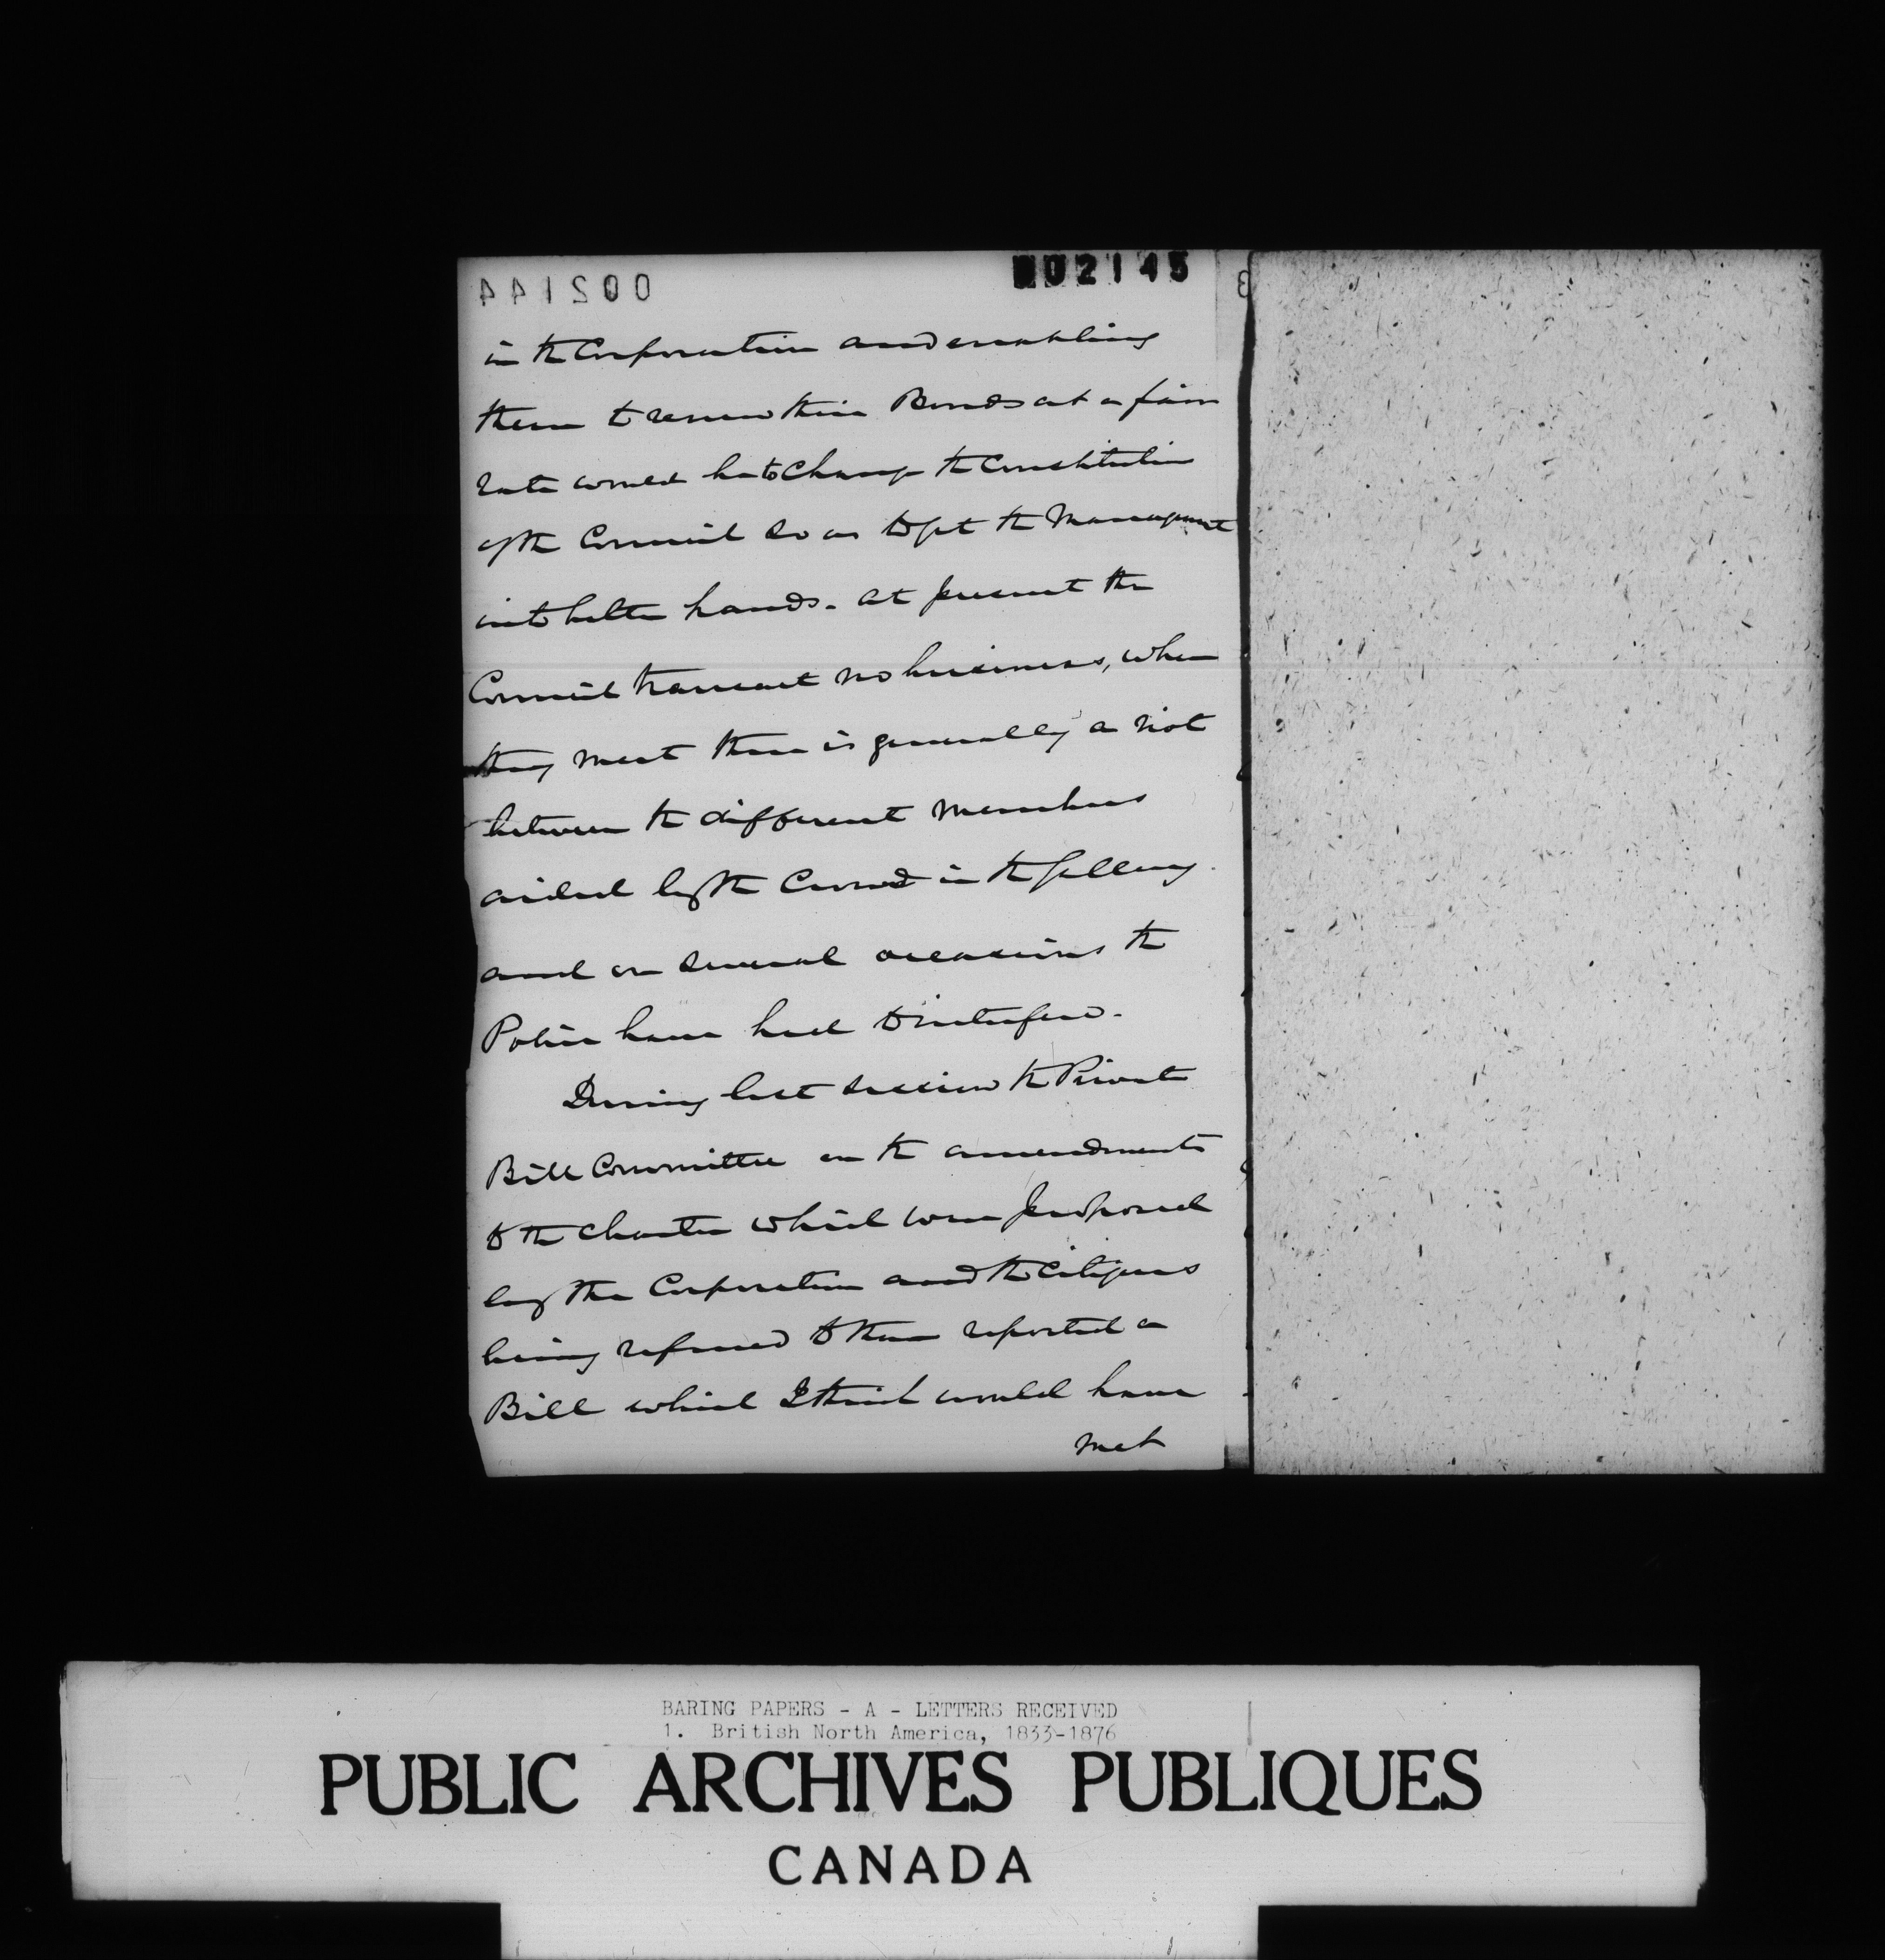 002144
002145
in the Corporation and enabling
them to renew their Bonds at a fair
rate would be to Change the Constitution
of the Council so as to get the Management
into better hands. At present the
Council transact no business, when
they meet there is generally a riot
between the different Members
aided by the Crowd in the Gallery
and on several occasions the
Police have had to interfere.
During last session the Private
Bill Committee on the amendments
to the Charter which were proposed
by the Corporation and the Citizens
being referred to them reported a
Bill which I think would have
met
BARING PAPERS - A - LETTERS RECEIVED
1. British North America, 1833-1876
PUBLIC ARCHIVES PUBLIQUES
CANADA